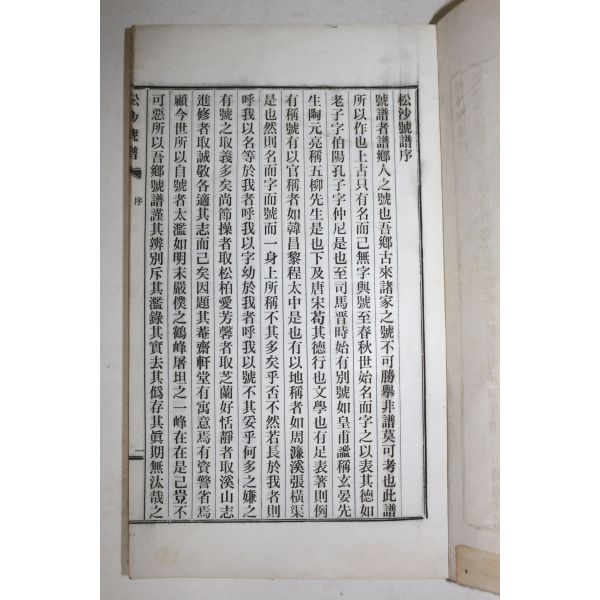 松沙號譜序
號譜者譜鄉人之號也吾鄉古來諸家之號不可勝擧非譜莫可考也此譜
所以作也上古只有名而已無字與號至春秋世始名而字之以表其德如
老子字伯陽孔子字仲尼是也至司馬晋時始有別號如皇甫謐稱玄晏先
生陶元亮稱五柳先生是也下及唐宋苟其德行也文學也有足表著則例
有稱號有以官稱者如韓昌黎程太中是也有以地稱者如周濂溪張橫渠
是也然則名而字而號而一身上所稱不其多矣乎否不然若長於我者則
呼我以名等於我者呼我以字幼於我者呼我以號不其妥乎何多之嫌之
有號之取義多矣尚節操者取松柏愛芳馨者取芝蘭好恬靜者取溪山志
進修者取誠敬各適其志而已矣因題其菴齋軒堂有寓意焉有資警省焉
顧今世所以自號者太濫如明末嚴僕之鶴峰屠坦之一峰在在是已豈不
可惡所以吾鄉號譜謹其辨別斥其濫錄其實去其僞存其眞期無汰哉之
松沙號譜
序
二